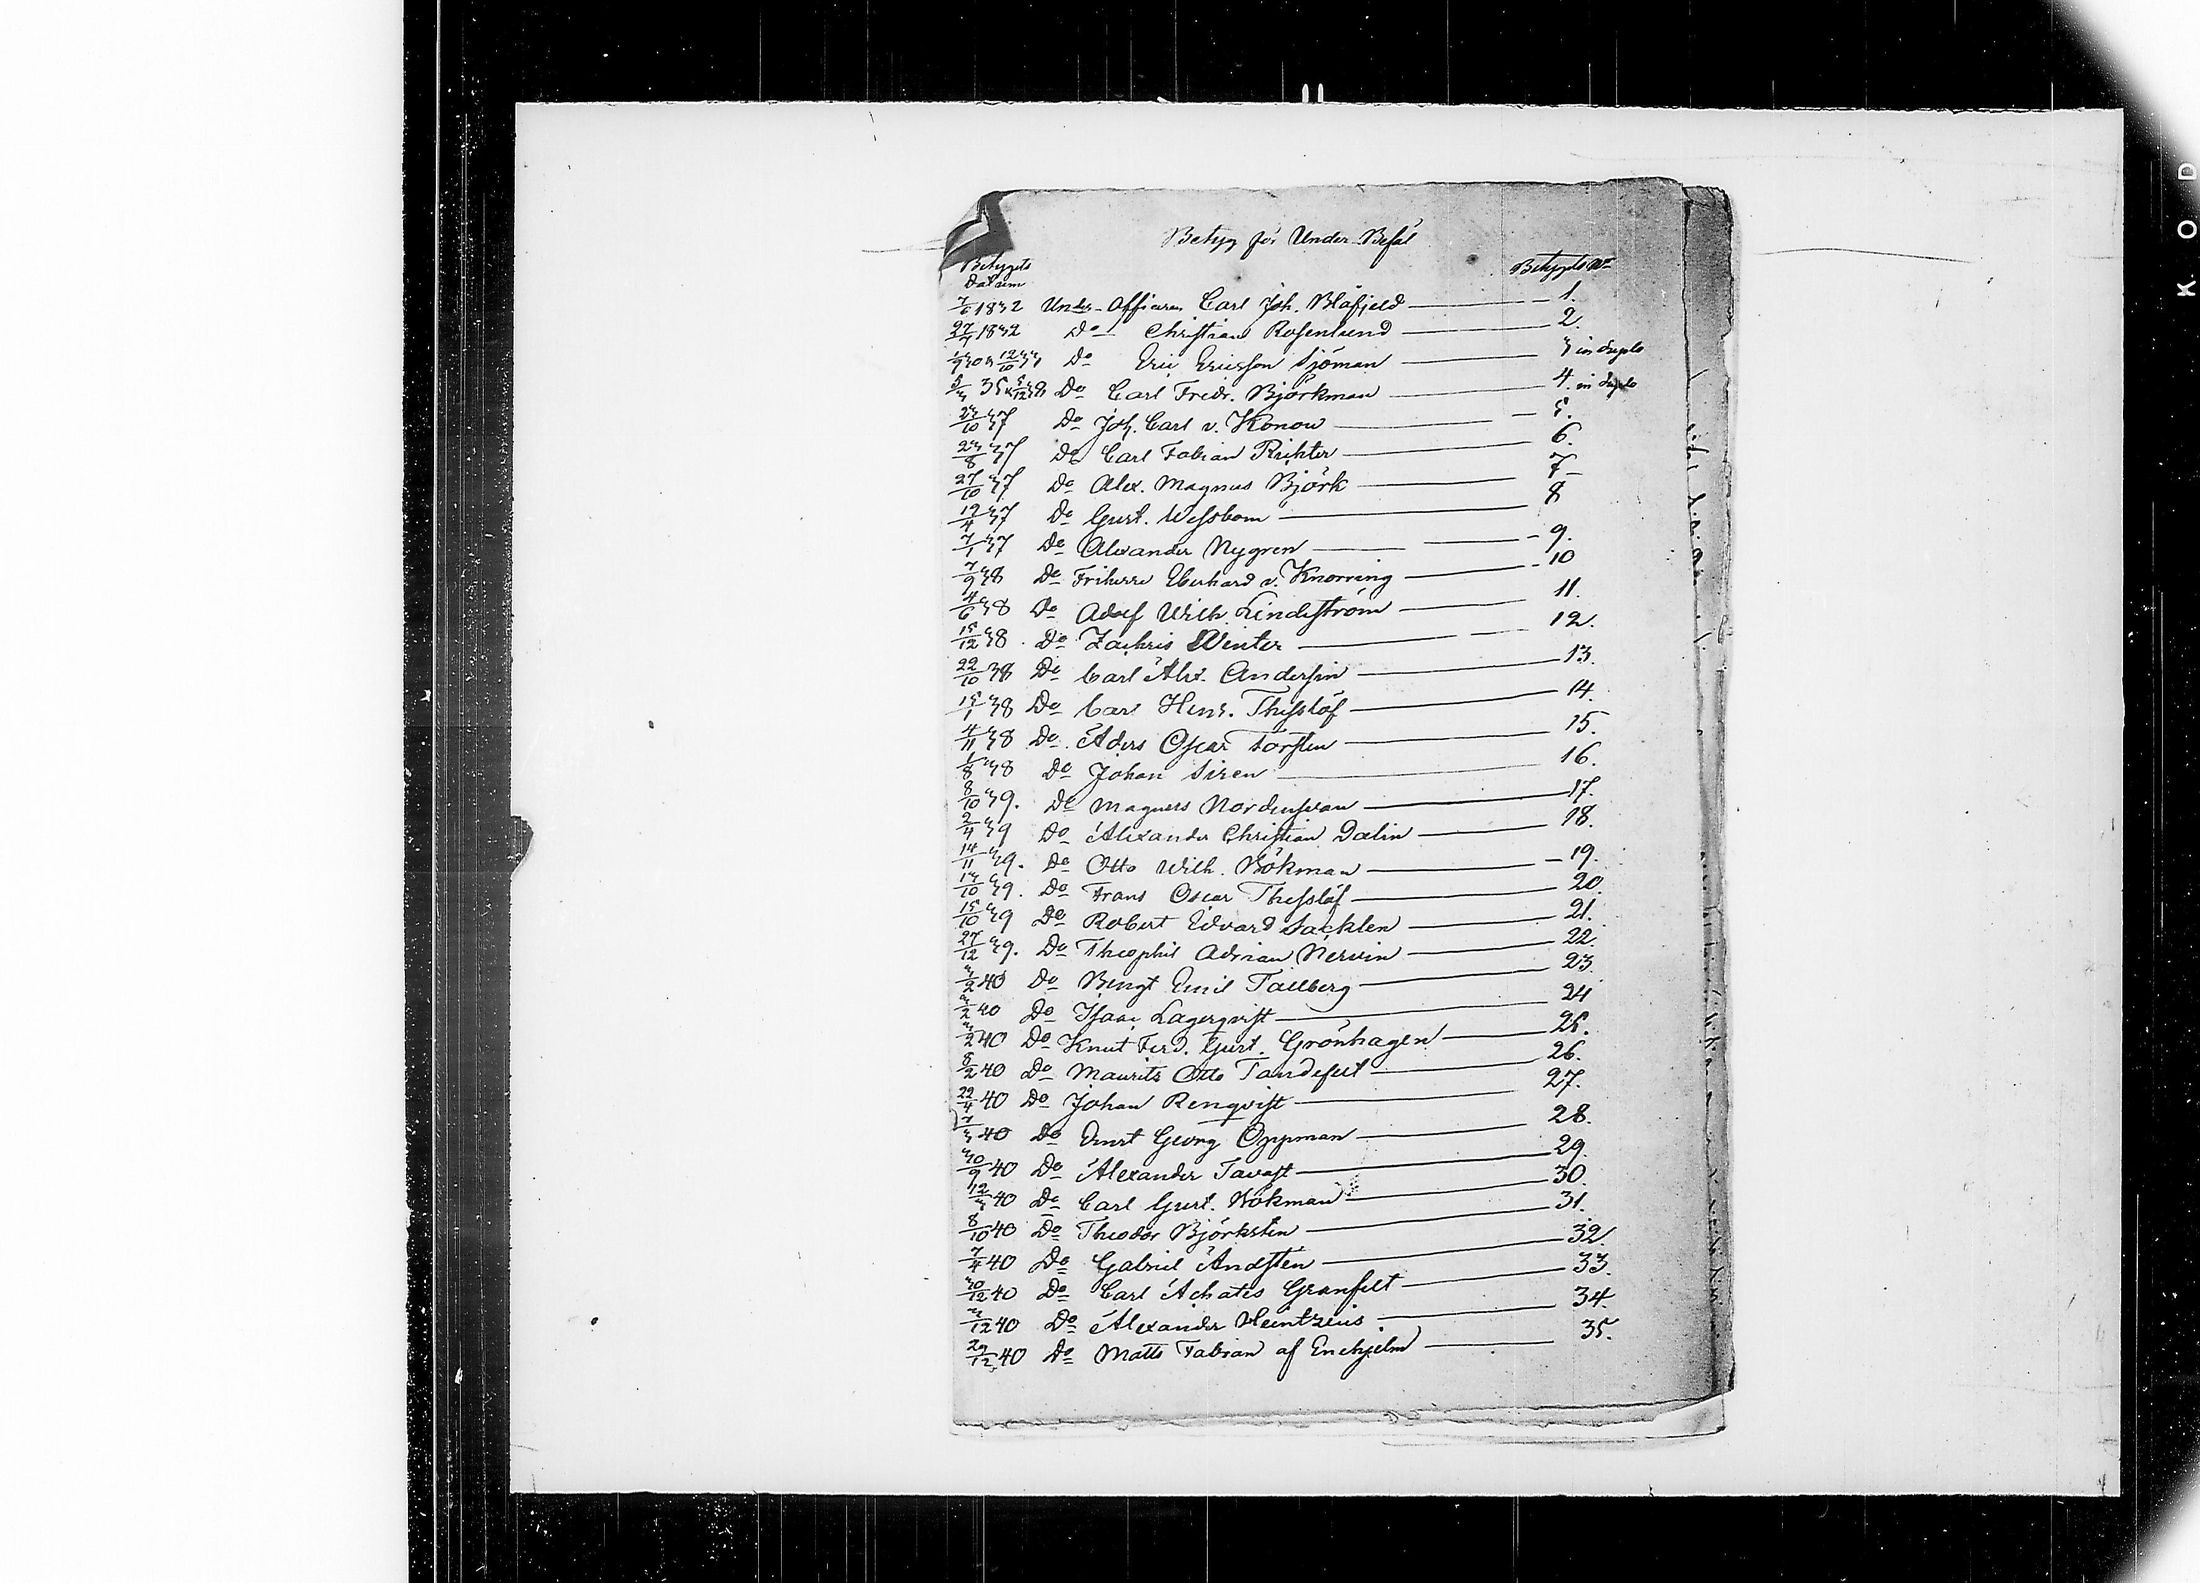 Betyg för Under-Befäl
Betygets Datum Betygets No
7/6 1832 Under-Officeren Carl Joh. Blåfjeld 1.
27/7 1832 Do Christian Rosenlund 2.
Do Eric Ericsson Sjöman 3 in duplo
Do Carl Fredr. Björkman 4. in duplo
23/10 37 Do Joh. Carl v. Konow 5.
23/8 37 Do Carl Fabian Richter 6.
27/10 37 Do Alex. Magnus Björk 7
19/4 37 Do Gust. Wessbom 8
7/1 37 Do Alexander Nygren 9.
7/9 38 Do Friherre Eberhard v. Knorring 10
4/6 38 Do Adolf Wilh. Lindström 11.
15/12 38 Do Zachris Winter 12.
22/10 38 Do Carl Alex. Andersin 13.
15/1 38 Do Carl Henr. Thesslöf 14.
4/11 38 Do Åders Oscar Forsten 15.
1/8 38 Do Johan Siren 16.
8/10 39. Do Magnus Nordenswan 17.
2/4 39 Do Alexander Christian Dalin 18.
14/11 39. Do Otto Wilh. Bökman 19.
13/10 39. Do Frans Oscar Thesslöf 20.
15/10 39 Do Robert Edvard Sacklen 21.
27/12 39. Do Theophil Adrian Nervin 22.
3/2 40 Do Bengt Emil Tallberg 23
3/2 40 Do Isaac Lagerqvist 24
3/2 40 Do Knut Ferd. Gust. Grönhagen 25.
8/2 40 Do Maurits Otto Tandefelt 26.
22/4 40 Do Johan Renqvist 27.
7/3 40 Do Ernst Georg Oppman 28.
30/9 40 Do Alexander Tavast 29.
12/3 40 Do Carl Gust. Bökman 30.
8/10 40 Do Theodor Björksten 31.
7/4 40 Do Gabriel Andsten 32.
30/12 40 Do Carl Achates Granfelt 33.
3/12 40 Do Alexander Heintzius 34.
29/12 40 Do Matts Fabian af Enehjelm 35.
K O D